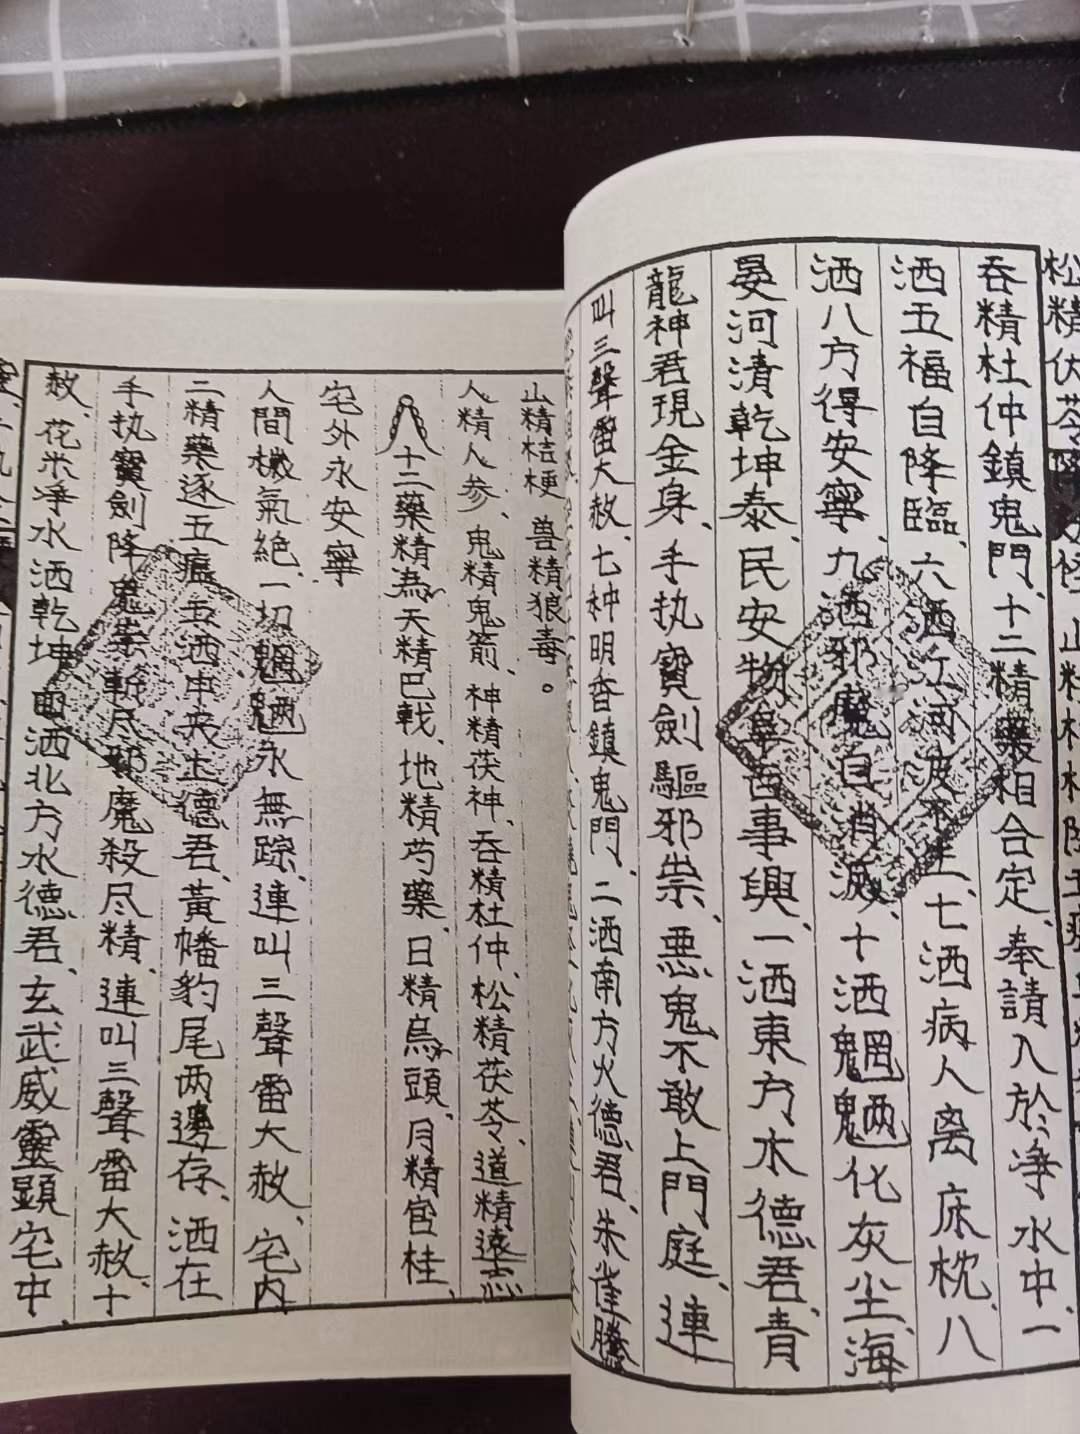 松精伏苓降
吞精杜仲鎮鬼門、十二精藥相合定、奉請入於净水中、一
洒五福自降臨、六洒江河波不生、七洒病人离床枕、八
洒八方得安寧、九洒邪魔自消滅、十洒魍魎化灰尘、海
晏河清乾坤泰、民安物阜百事興、一洒東方木德君、青
龍神君現金身、手执寶劍驅邪祟、惡鬼不敢上門庭、連
叫三聲雷大赦、七种明香鎮鬼門、二洒南方火德君、朱雀騰
山精桔梗 兽精狼毒。
人精人参、鬼精鬼箭、神精茯神、吞精杜仲、松精茯苓、道精遠志
十二藥精為天精巴戟、地精芍藥、日精烏頭、月精官桂、
宅外永安寧
人間穢氣絶、一切魍魎永無踪、連叫三聲雷大赦、宅内
二精藥逐五瘟、五洒中央土德君、黃幡豹尾两邊存、洒在
手执寶劍降鬼祟、斬尽邪魔殺尽精、連叫三聲雷大赦、十
赦、花米净水洒乾坤、四洒北方水德君、玄武威靈顯宅中、